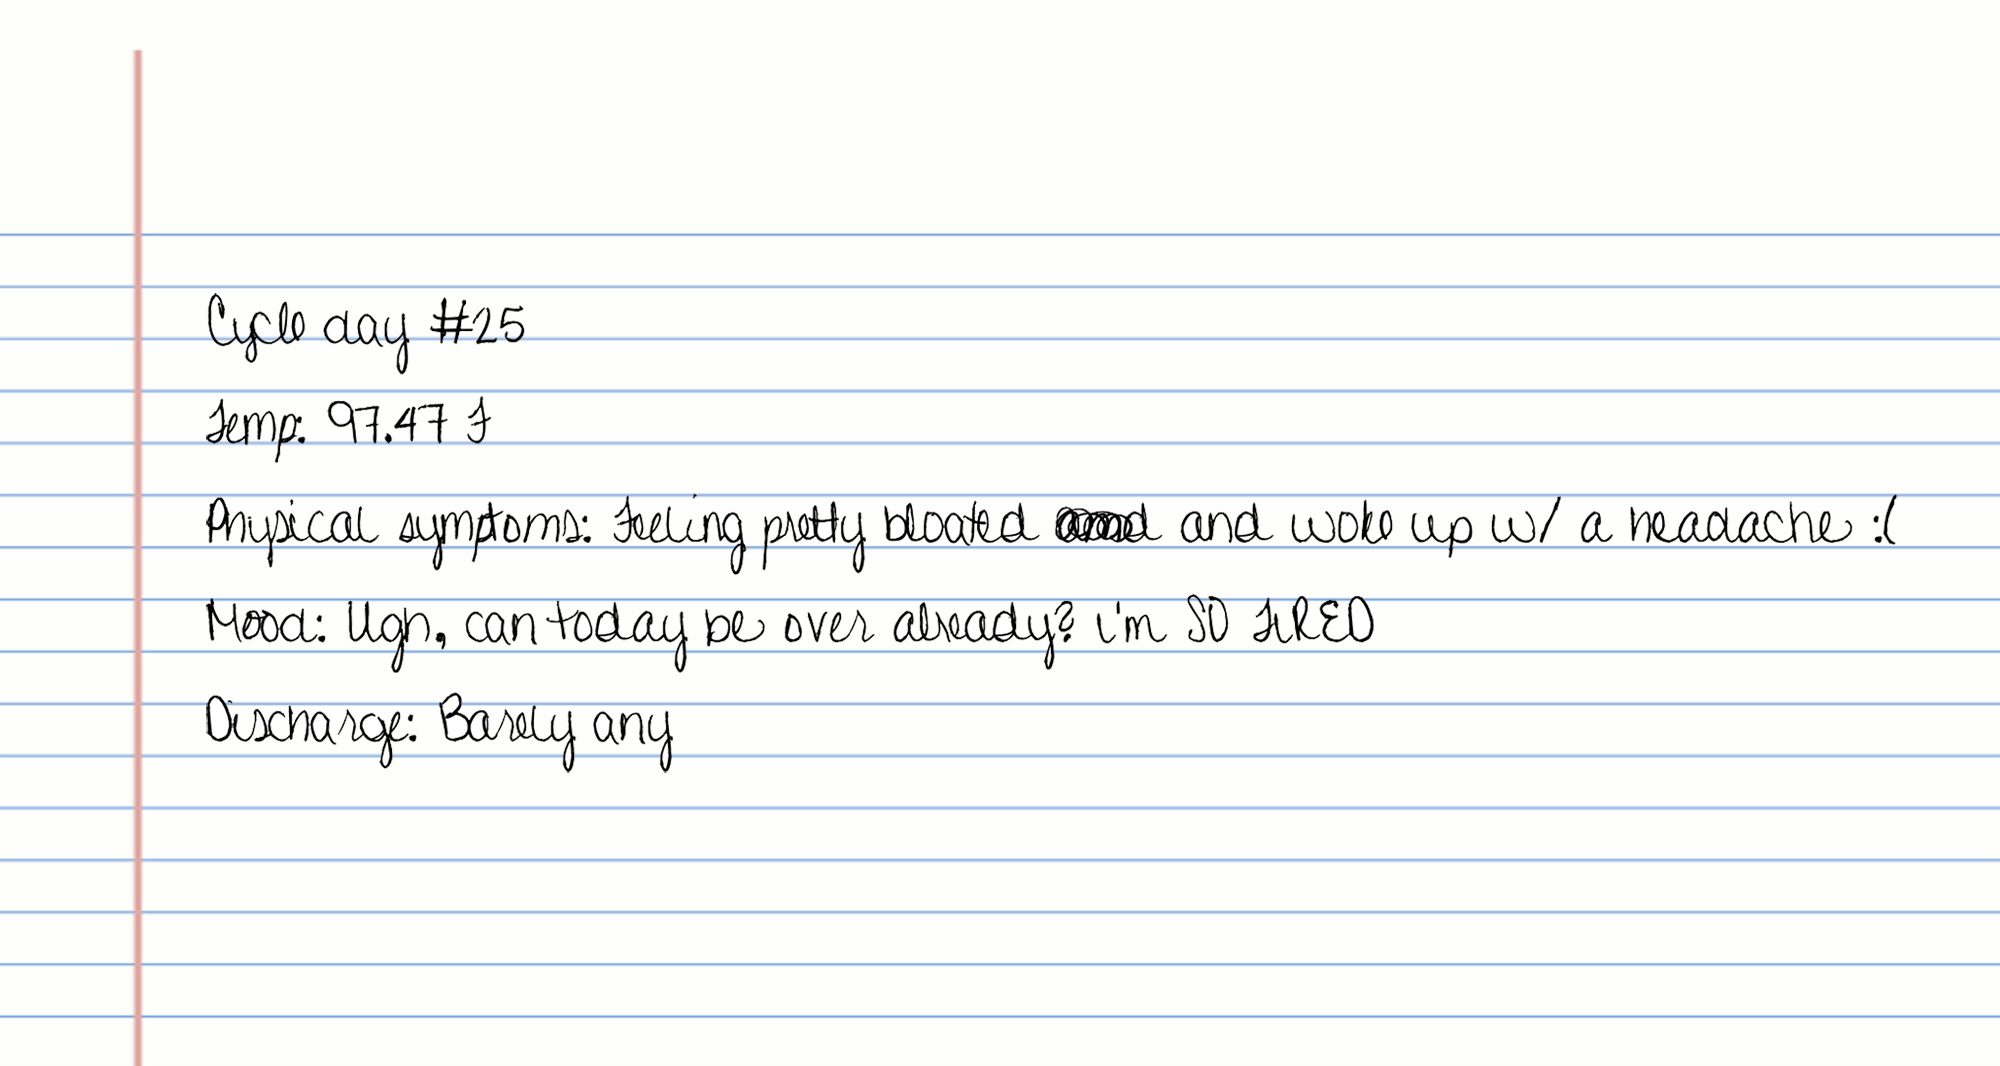 Cycle day #25
Temp: 97.47 F
Physical symptoms: Feeling pretty bloated and woke up w/ a headache :(
Mood: Ugh, can today be over already? i'm SO TIRED
Discharge: Barely any